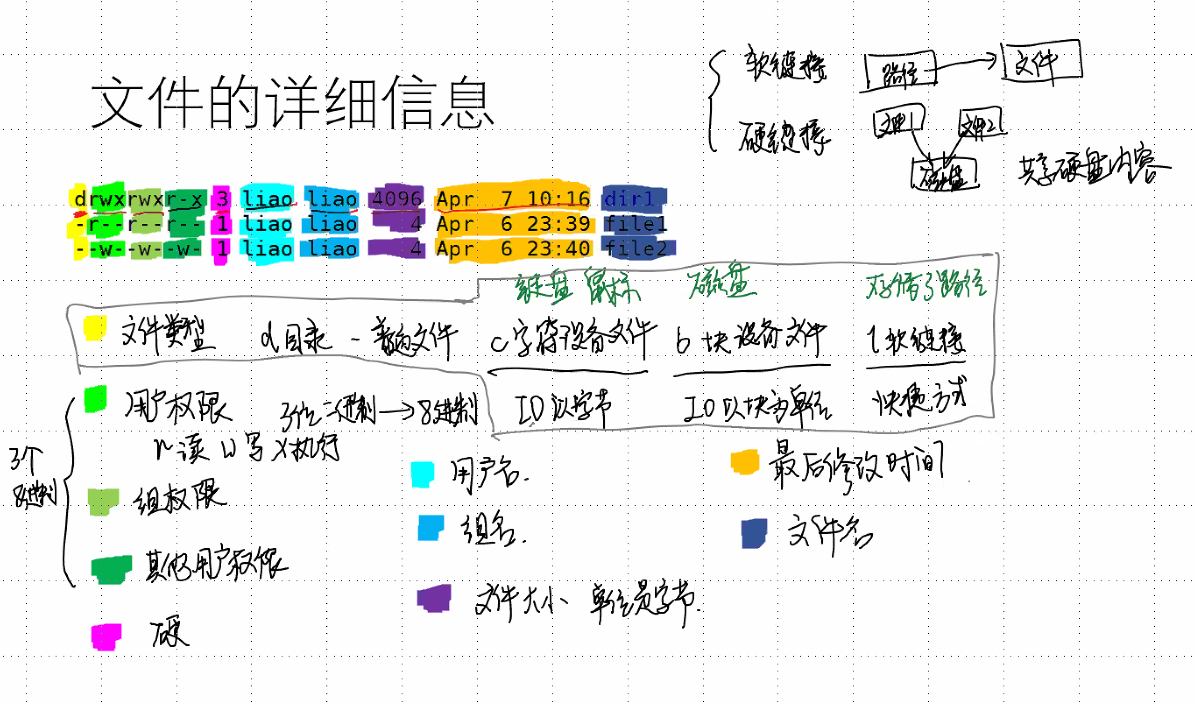 文件的详细信息
软链接 路径 文件
硬链接 文件1 文件2
磁盘 共享硬盘内容
drwxrwxr-x 3 liao liao 4096 Apr 7 10:16 dir1
-r--r--r-- 1 liao liao 4 Apr 6 23:39 file1
--w--w--w- 1 liao liao 4 Apr 6 23:40 file2
键盘 鼠标 磁盘 存储了路径
文件类型 d目录 - 普通文件 c字符设备文件 b块设备文件 l软链接
IO以字节 IO以块为单位 快捷方式
用户权限 3位二进制→8进制
r读 w写 x执行
3个
8进制
组权限
其他用户权限
硬
用户名.
组名.
文件大小 单位是字节.
最后修改时间
文件名